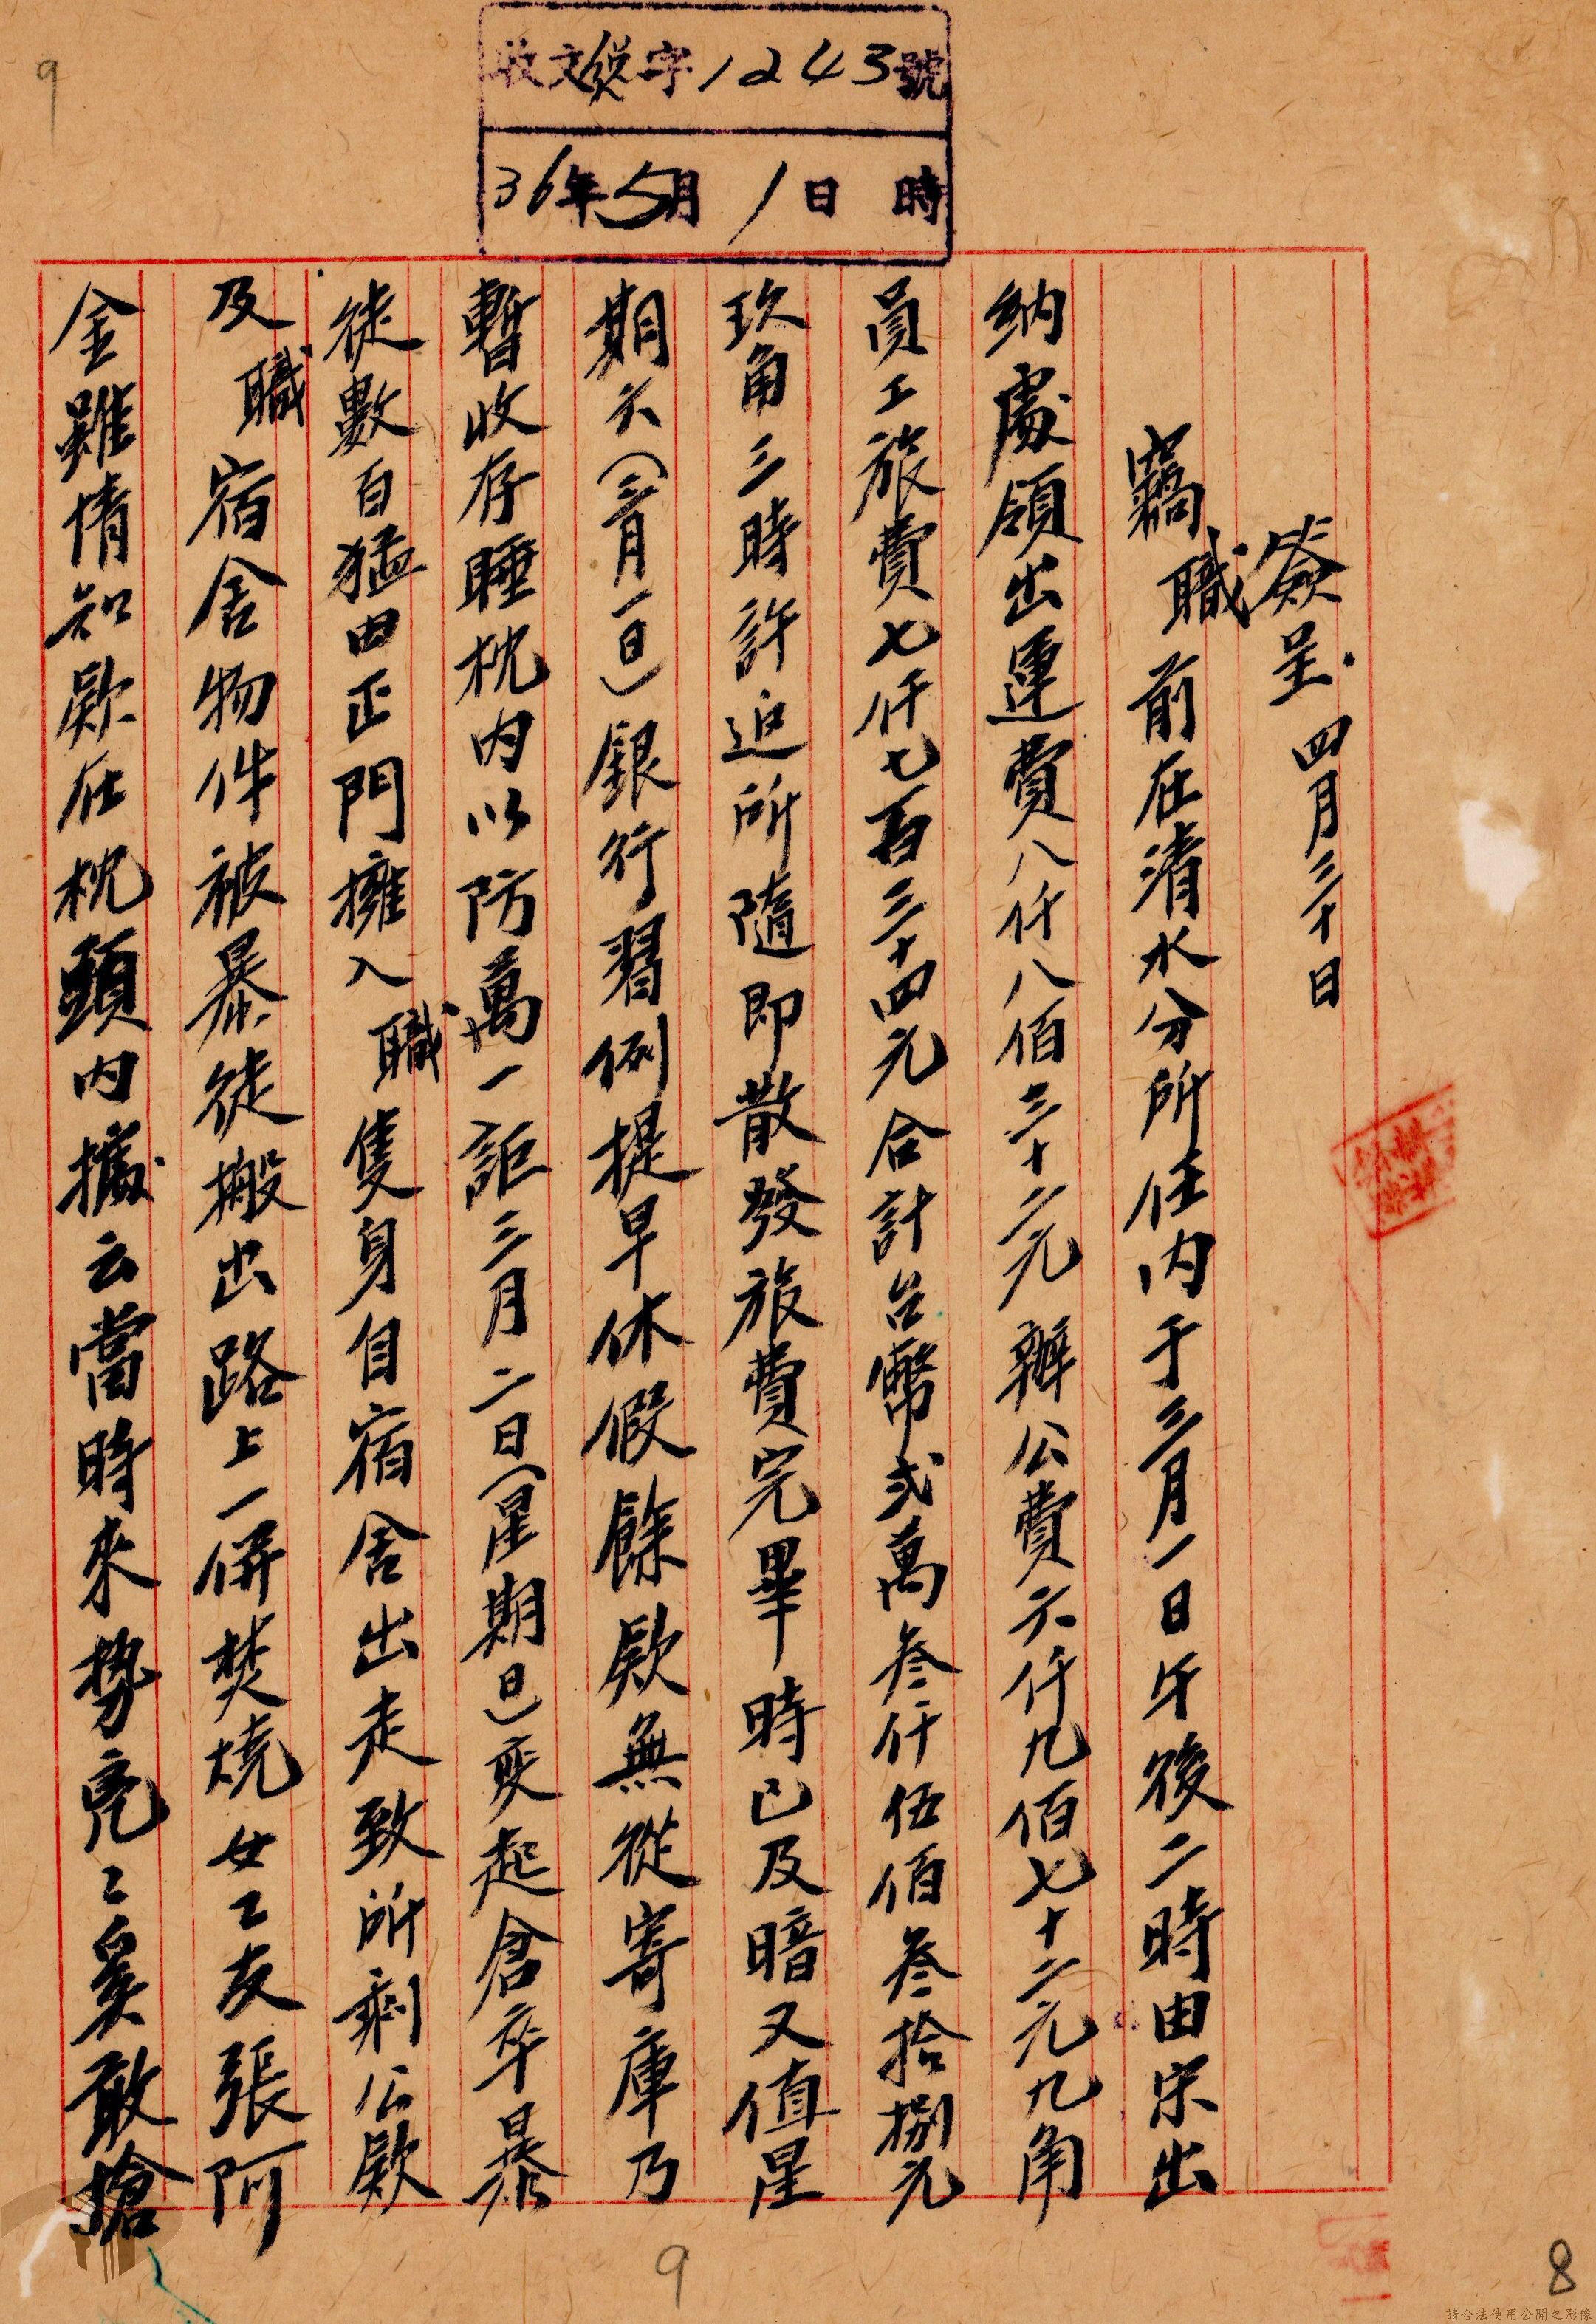 收文 字1243號
36年5月1日 時
簽呈 四月三十日
竊職前在清水分所任內于三月一日午後二時由宗出
納處領出運費八仟八佰三十二元辦公費六仟九佰七十二元九角
員工旅費七仟七百三十四元合計台幣弍萬叁仟伍佰叁拾捌元
玖角三時許迫所隨即散發旅費完畢時已及暗又值星
期六(三月一日)銀行習例提早休假餘欵無從寄庫乃
暫收存睡枕內以防萬一詎三月二日(星期日)變起倉卒暴
徒數百猛由正門擁入職隻身自宿舍出走致所剩公欵
及職宿舍物件被暴徒搬出路上一併焚燒女工友張阿
金雖情知欵在枕頭內據云當時來勢兇〻奚敢搶
9
9
8
請合法使用公開之影像